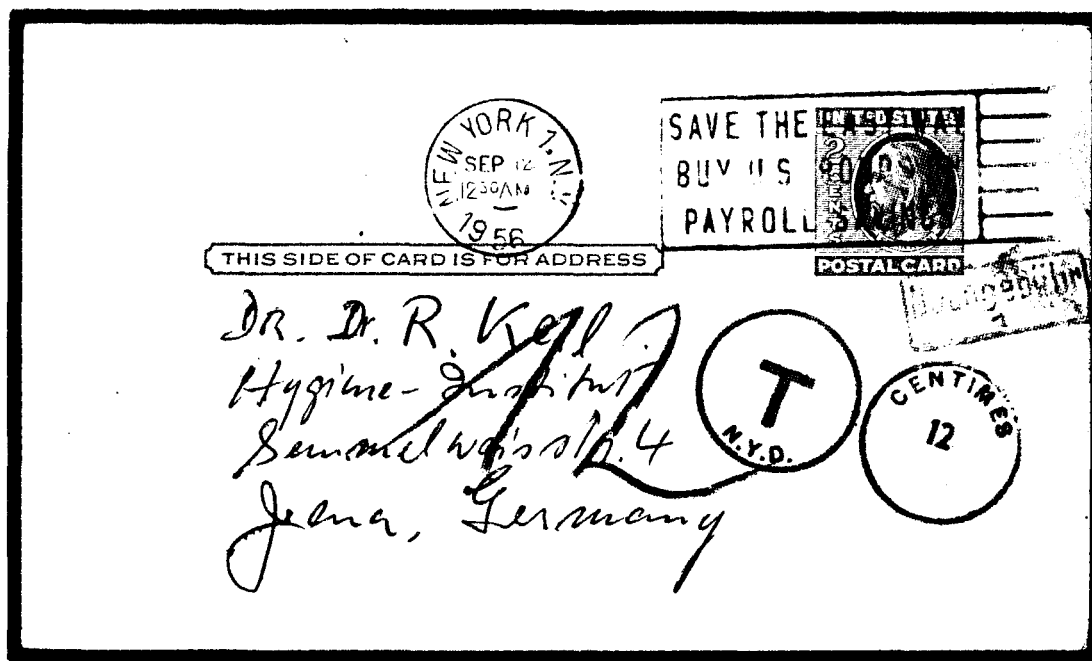 NEW YORK 1, N.Y.
SEP 12
12 30 AM
1956
SAVE THE EASY WAY
BUY U S BONDS
PAYROLL SAVINGS
UNITED STATES
2 CENTS
POSTAL CARD
THIS SIDE OF CARD IS FOR ADDRESS
Dr. Dr. R.
Hygiene-Institut
Semmelweisstr. 4
Jena, Germany
12
T
N.Y.D.
CENTIMES
12